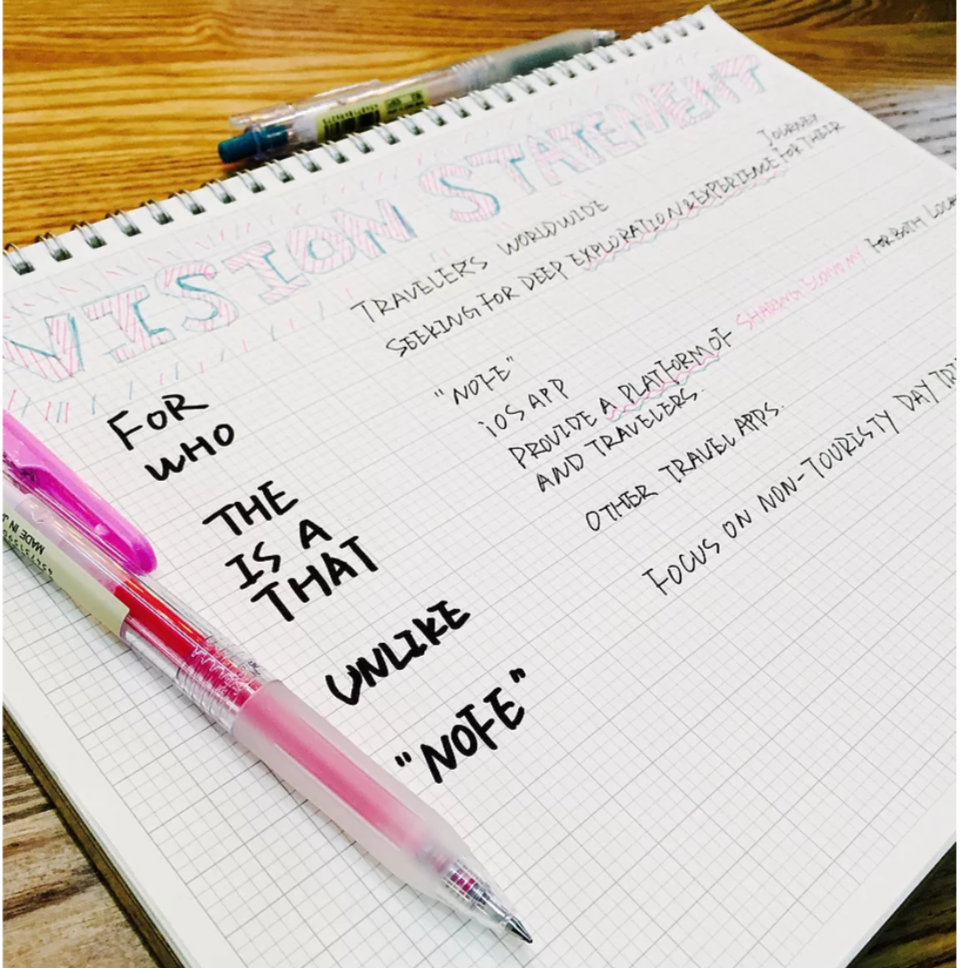 VISION STATEMENT
FOR TRAVELERS WORLDWIDE
WHO SEEKING FOR DEEP EXPLORATION & EXPERIENCE FOR THEIR JOURNEY
THE "NOTE"
IS A iOS APP
THAT PROVIDE A PLATFORM OF SHARING ECONOMY FOR BOTH
AND TRAVELERS.
UNLIKE OTHER TRAVEL APPS.
"NOTE" FOCUS ON NON-TOURISTY DAY
MADE IN